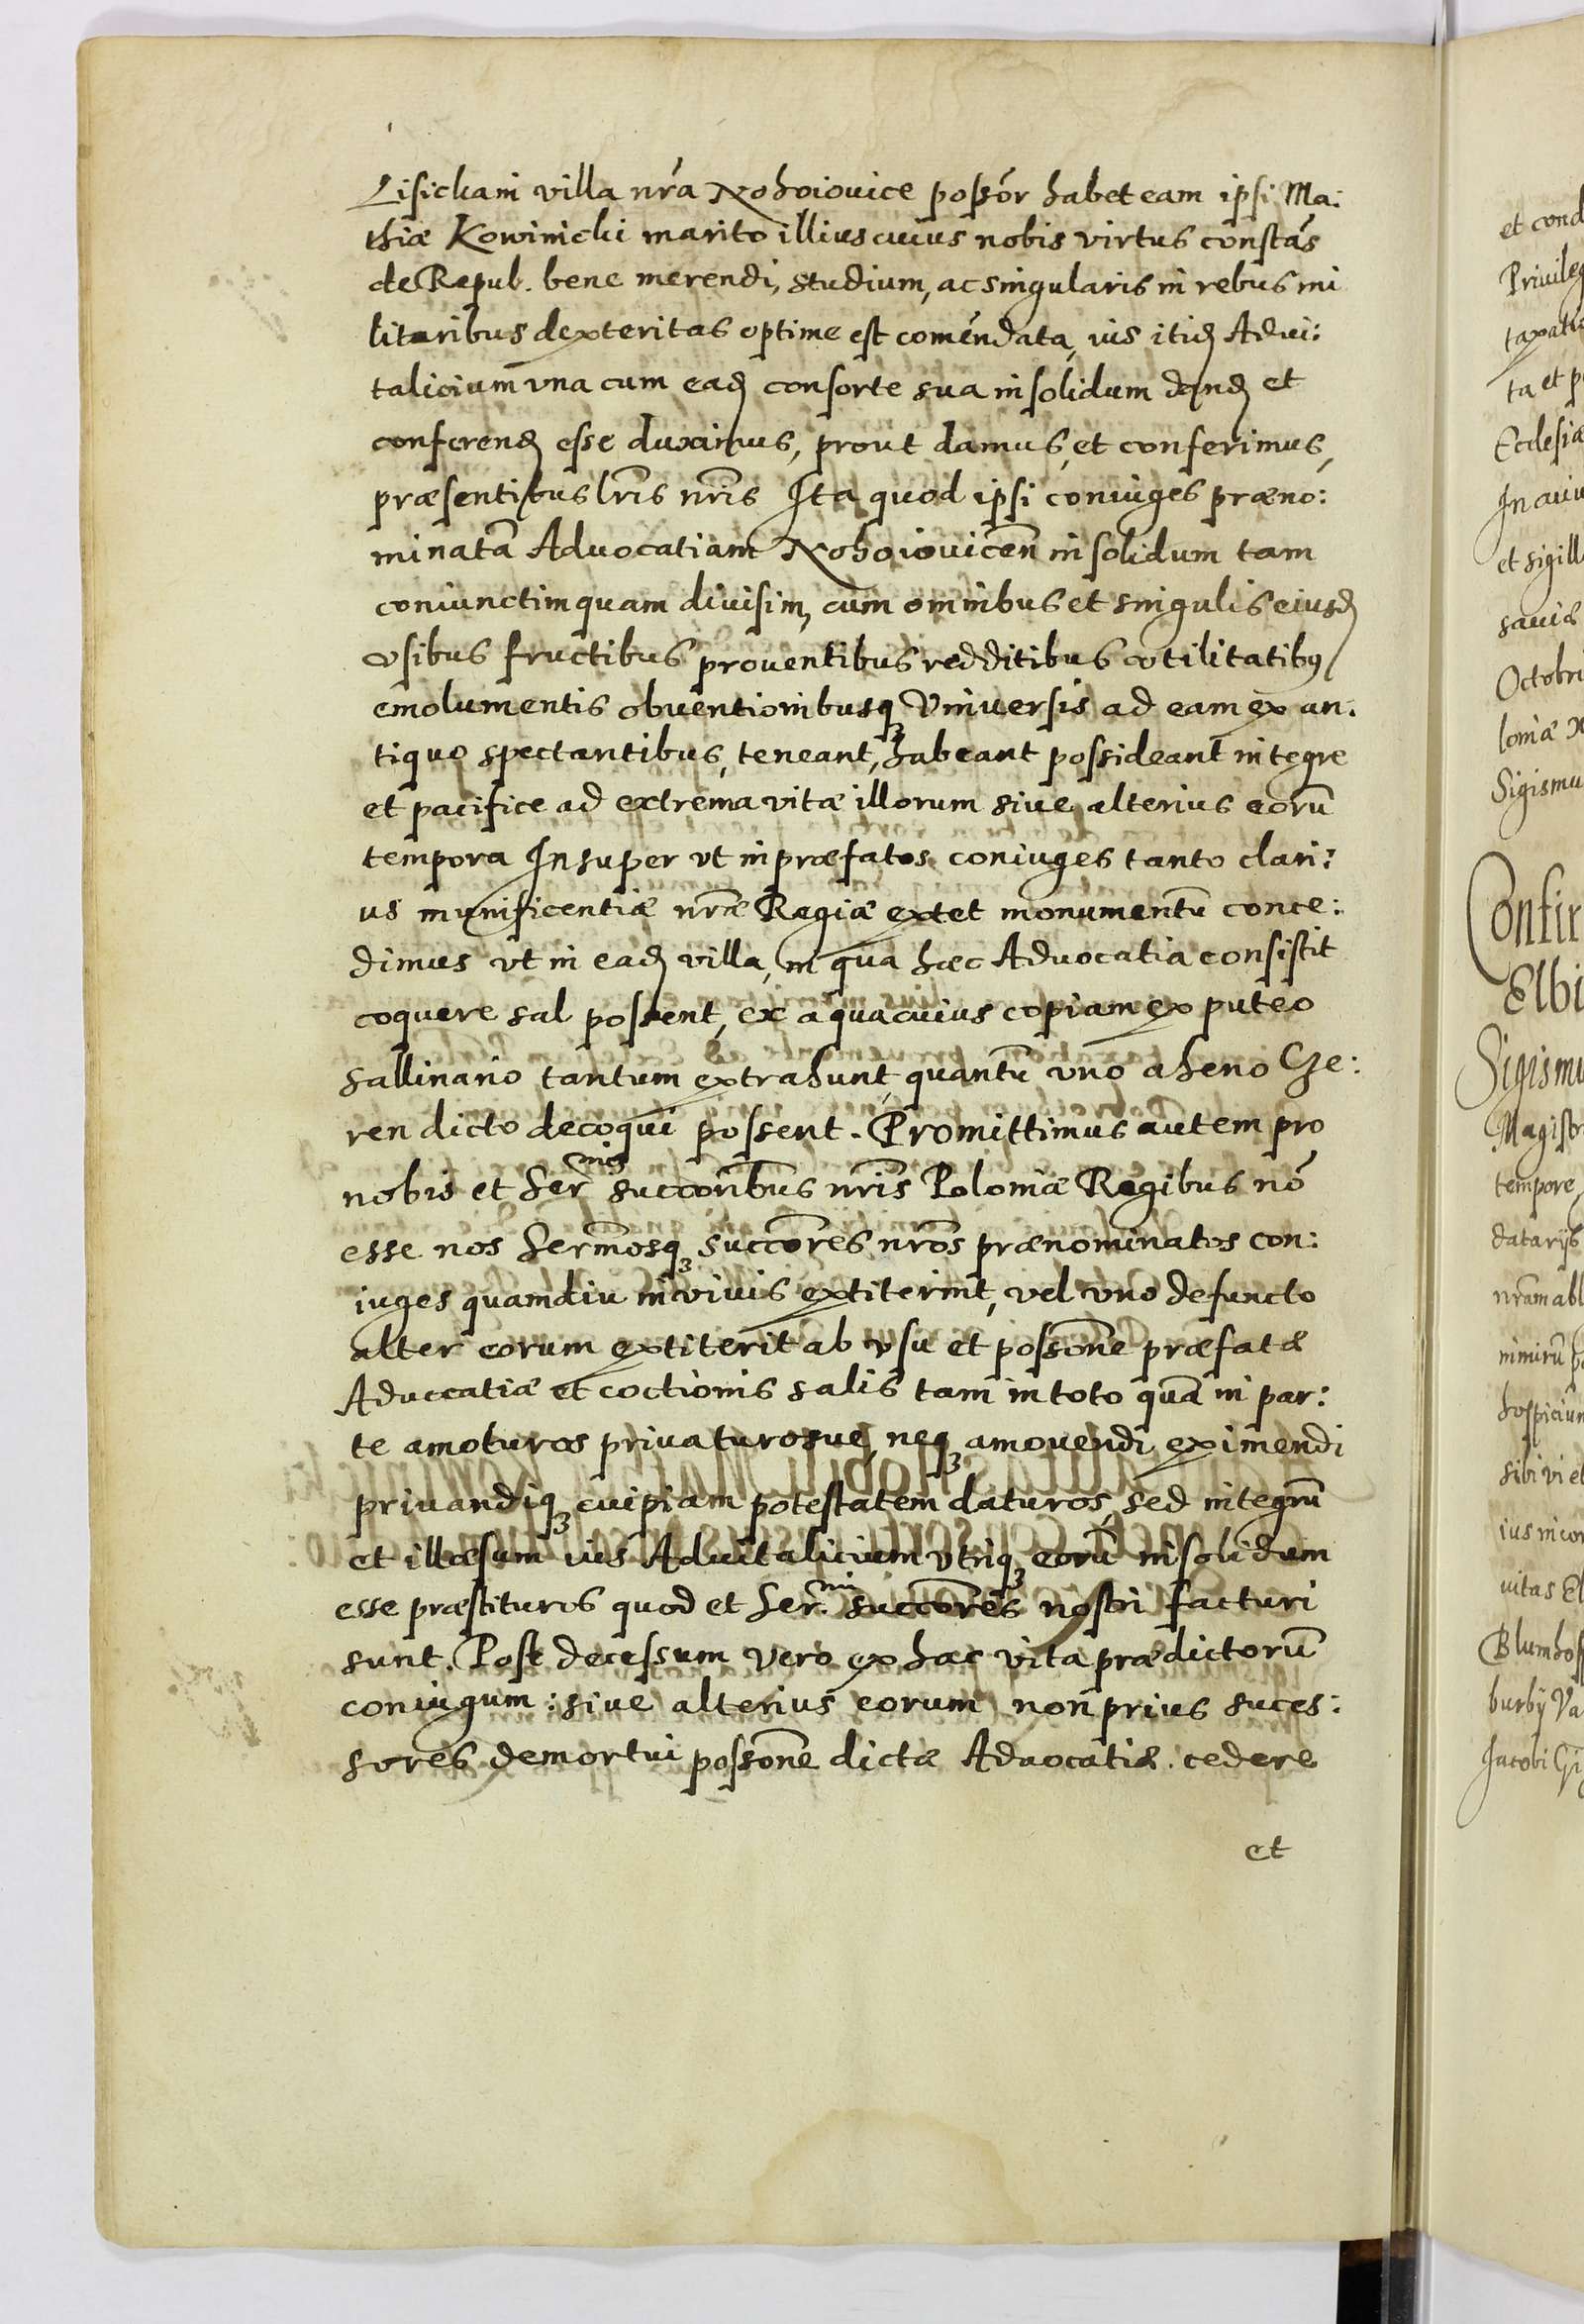 Lisickani villa nrã Nohoiovice possõr habet eam ipsi Ma:
thiæ Kowinicki marito illius cuius nobis virtus constãs
de Repub. bene merendi, studium, ac singularis in rebus mi
litaribus dexteritas optime est comẽndata, ius itiđ Advi:
talicium vna cum eađ consorte sua in solidum danđ et
conferenđ esse duximus, prout damus, et conferimus,
præsentibus lr̃is nr̃is Ita quod ipsi coniuges præno:
minatã Advocatiam Nohoiovicen̄ in solidum tam
coniunctim quam divisim, cum omnibus et singulis eiusđ
vsibus fructibus proventibus redditibus vtilitatibꝰ
emolumentis obventionibusqꝫ Vniversis ad eam ex an:
tiquo spectantibus, teneant, habeant possideant integre
et pacifice ad extrema vitæ illorum sive alterius eorũ
tempora Insuper vt in præfatos coniuges tanto clari:
us munificentiæ nr̃æ Regiæ extet monumentũ conce:
dimus vt in eađ villa, in qua hæc Advocatia consistit
coquere sal possent, ex aqua cuius copiam ex puteo
sallinario tantum extrahunt, quantũ vno aheno Cze:
ren dicto decoqui possent. Promittimus autem pro
nobis et Ser^mis succorĩbus nr̃is Poloniæ Regibus nõ
esse nos Serm̃osqꝫ succõres nr̃os prænominatos con:
iuges quamdiu in vivis extiterint, vel vno defuncto
alter eorum extiterit ab vsu et possõne præfatæ
Advccatiæ et coctionis salis tam in toto quã in par:
te amoturos privaturosve, neqꝫ amovendi eximendi
privandiqꝫ cuipiam potestatem daturos, sed integrũ
et illæsum ius Advitalicium vtriqꝫ eorũ in solidum
esse præstituros quod et Ser.^mi succõres nostri facturi
sunt. Post decessum vero ex hac vita prædictorũ
coniugum: sive alterius eorum non prius suces:
sores demortui possõne dictæ Advocatiæ. cedere
et
et cond
Privileg
taxatio
ta et p
Ecclesiæ
In cuiu
et sigill
saviæ
Octobri
loniæ
Sigismu
Confir
Elbi
Sigismu
Magistr
tempore
datarijs
nr̃am abl
nimirũ
hospicium
sibi vi et
ius in cor
vitas El
Blumhoff
burby Va
Jacobi Gi